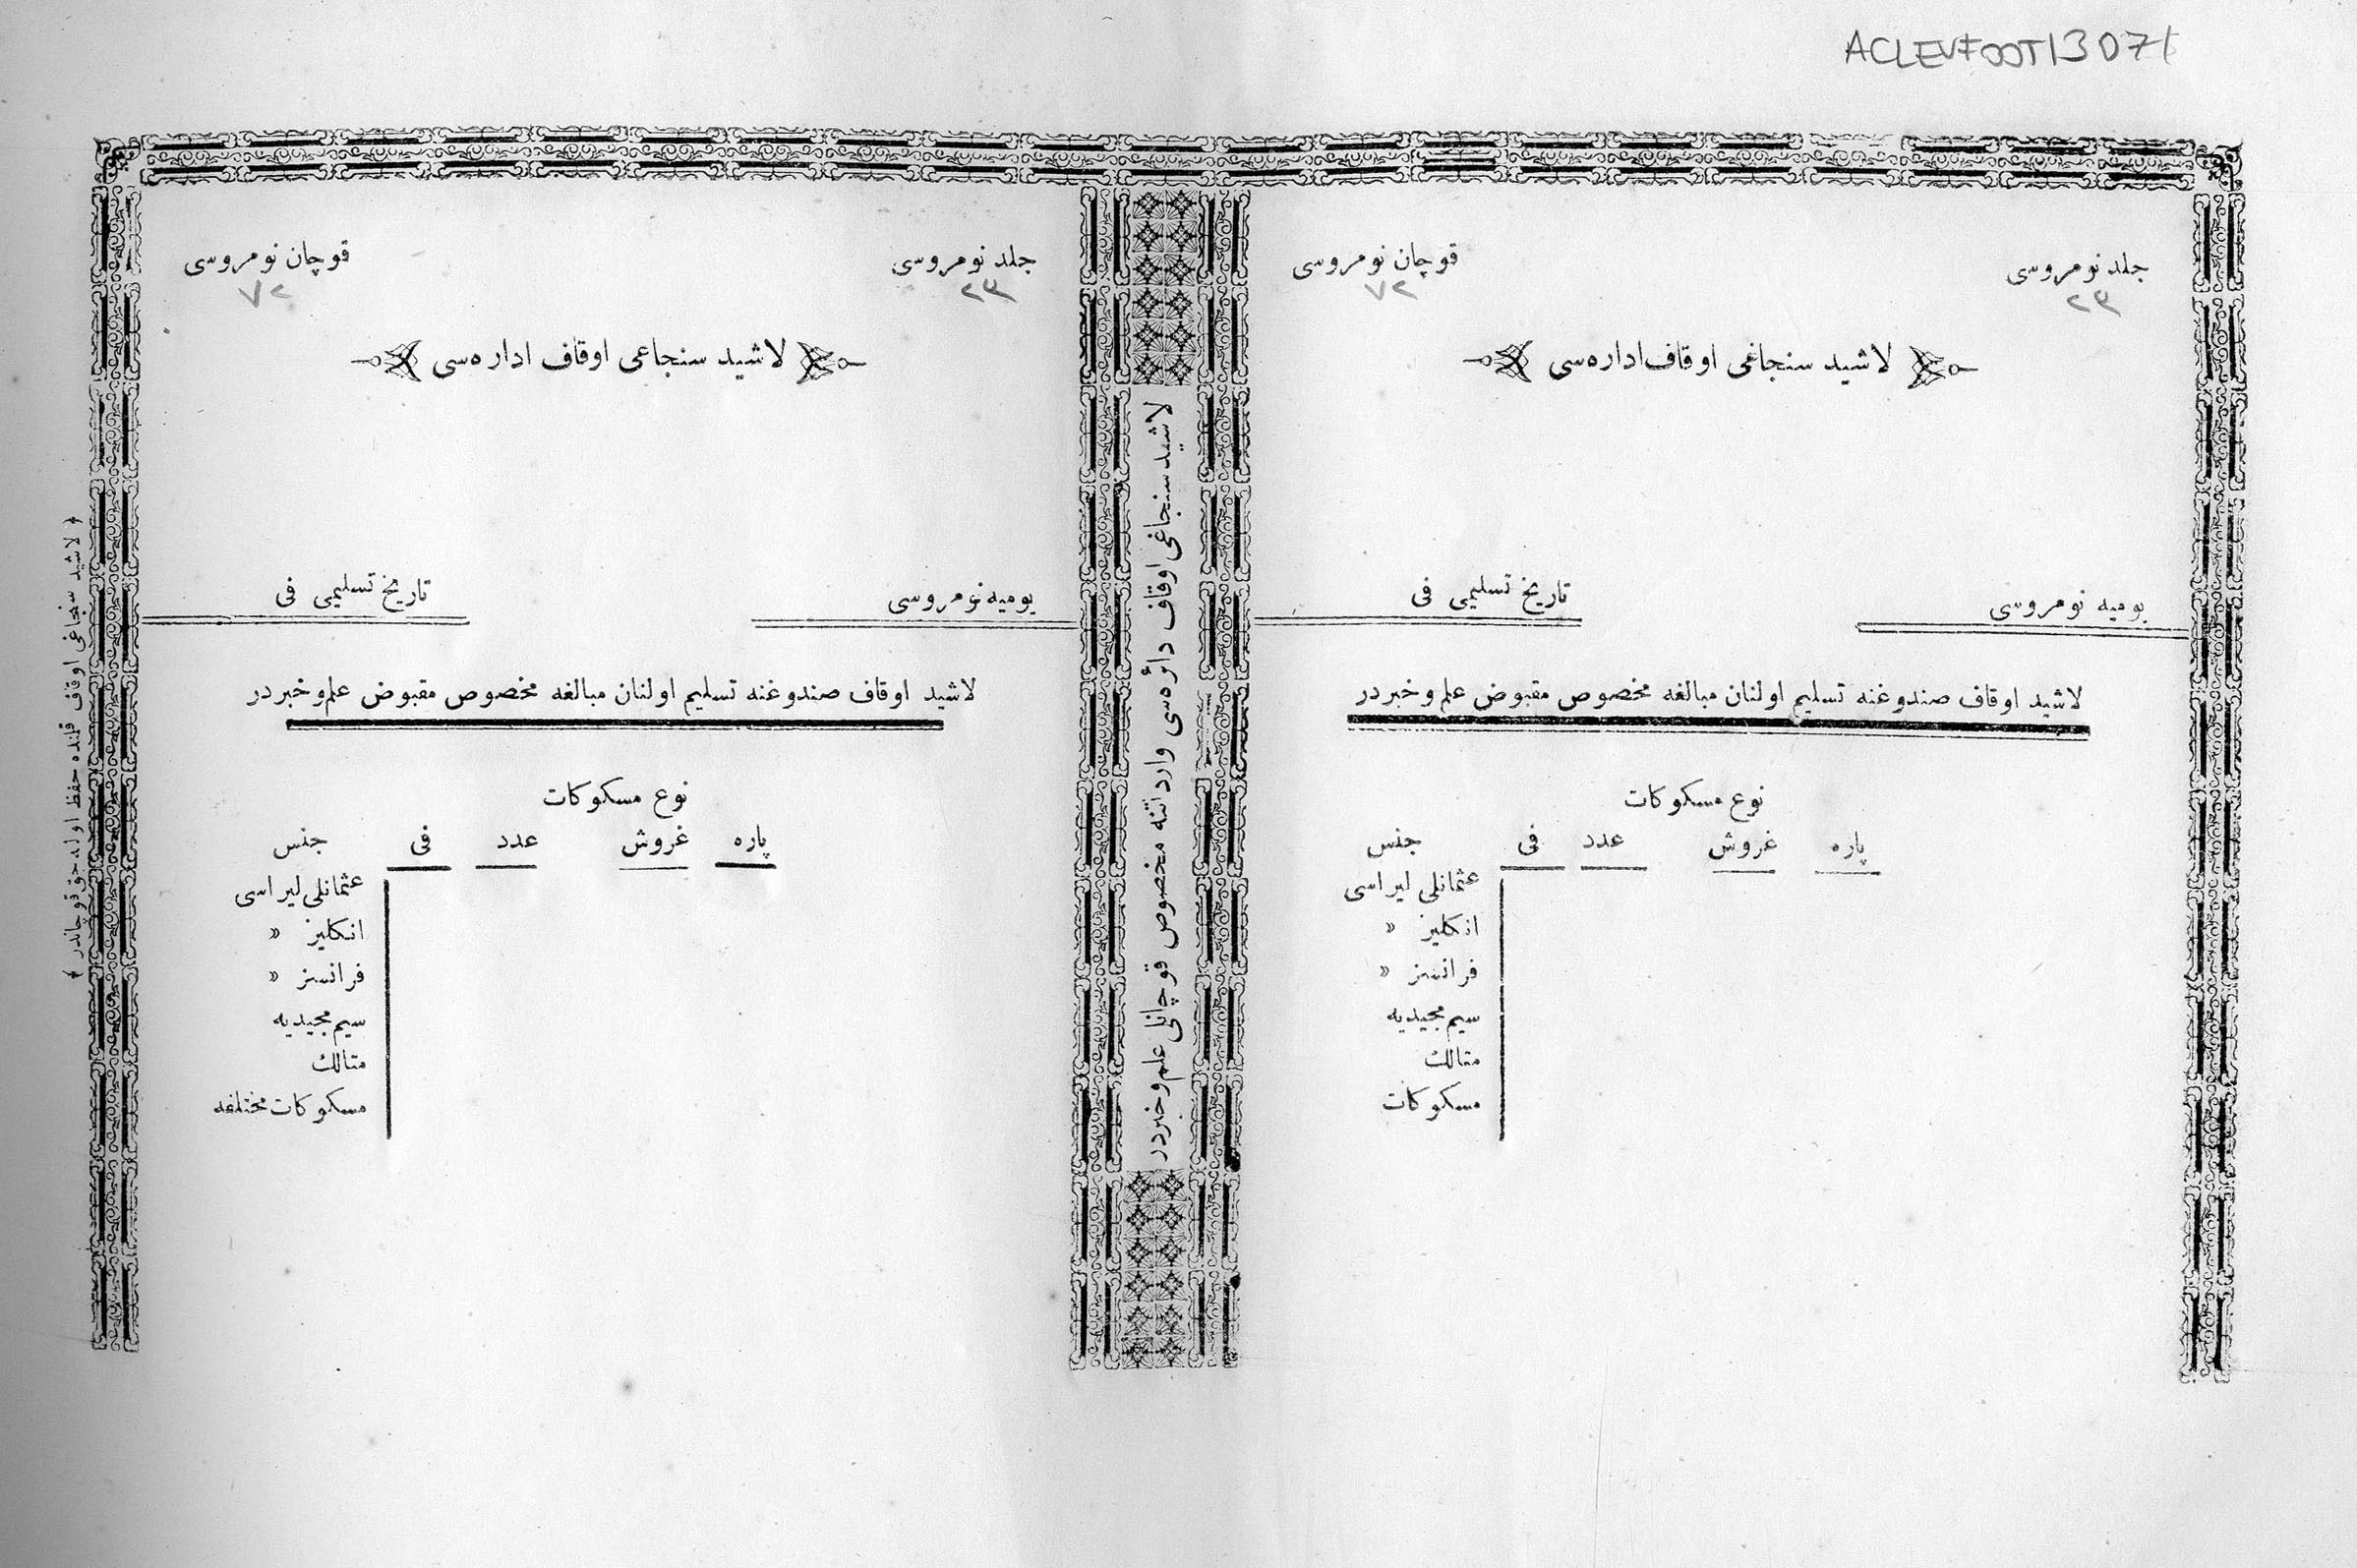 ACLEVF00T13071
جلد نومروسی
٢٣
قوچان نومروسی
٧٢
لاشید سنجاغی اوقاف اداره‌سی
یومیه نومروسی
تاریخ تسلیمی فی
لاشید اوقاف صندوغنه تسلیم اولنان مبالغه مخصوص مقبوض علم و خبردر
نوع مسکوکات
پاره غروش عدد فی جنس
عثمانلی لیراسی
انکلیز »
فرانسز »
سیم مجیدیه
متالك
مسکوکات
لاشید سنجاغی اوقاف دائره‌سی وارداتنه مخصوص قوچانلی علم و خبردر
جلد نومروسی
٢٣
قوچان نومروسی
٧٢
لاشید سنجاعی اوقاف اداره‌سی
یومیه نومروسی
تاریخ تسلیمی فی
لاشید اوقاف صندوغنه تسلیم اولنان مبالغه مخصوص مقبوض علم و خبردر
نوع مسکوکات
پاره غروش عدد فی جنس
عثمانلی لیراسی
انکلیز »
فرانسز »
سیم مجیدیه
متالك
مسکوکات مختلفه
﴿ لاشید سنجاغی اوقاف قلنده حفظ اوله‌جق قوچاندر ﴾